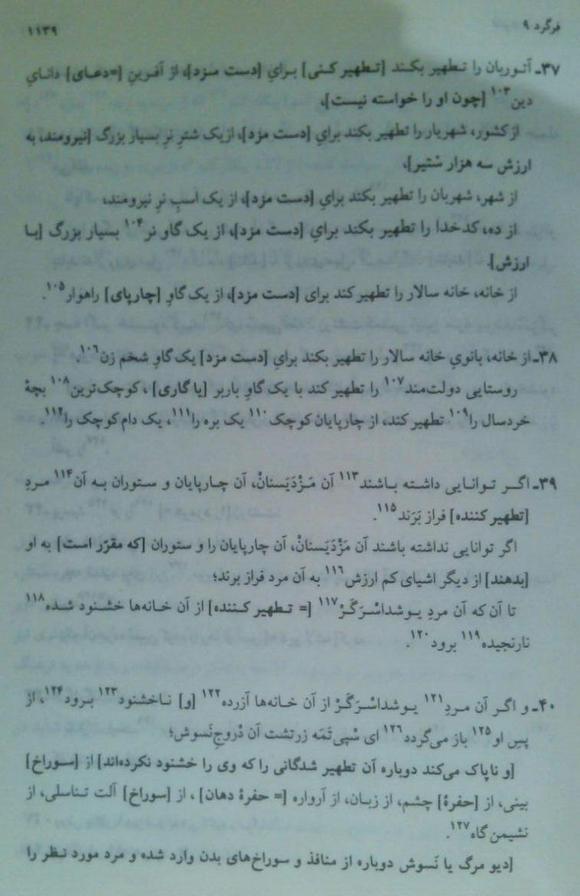 فرگرد ۹
۱۱۳۹
۳۷ـ آتوربان را تطهیر بکند [تطهیر کنی] برایِ [دست مزد]، از آفرینِ [=دعای] دانایِ
دین۱۰۳ [چون او را خواسته نیست]،
از کشور، شهریار را تطهیر بکند برایِ [دست مزد]، از یک شترِ نرِ بسیار بزرگ [نیرومند، به
ارزش سه هزار سْتیر]،
از شهر، شهربان را تطهیر بکند برایِ [دست مزد]، از یک اسبِ نرِ نیرومند،
از ده، کدخدا را تطهیر بکند برایِ [دست مزد]، از یک گاو نر۱۰۴ بسیار بزرگ [با
ارزش].
از خانه، خانه سالار را تطهیر کند برای [دست مزد]، از یک گاوِ [چارپای] راهوار۱۰۵.
۳۸ـ از خانه، بانویِ خانه سالار را تطهیر بکند برایِ [دست مزد] یک گاوِ شخم زن۱۰۶.
روستایی دولت‌مند۱۰۷ را تطهیر کند با یک گاوِ باربر [یا گاری]، کوچک‌ترین۱۰۸ بچهٔ
خردسال را۱۰۹ تطهیر کند، از چارپایان کوچک۱۱۰ یک بره را۱۱۱، یک دام کوچک را۱۱۲
۳۹ـ اگر توانایی داشته باشند۱۱۳ آن مَزْدَیَسنانْ، آن چارپایان و ستوران به آن۱۱۴ مردِ
[تطهیر کننده] فراز بَرَند۱۱۵.
اگر توانایی نداشته باشند آن مَزْدَیَسنانْ، آن چارپایان را و ستوران [که مقرّر است] به او
[بدهند] از دیگر اشیای کم ارزش۱۱۶ به آن مرد فراز برند؛
تا آن که آن مردِ یوشداسْرَگَرْ۱۱۷ [= تطهیر کننده] از آن خانه‌ها خشنود شده۱۱۸
نارنجیده۱۱۹ برود۱۲۰.
۴۰ـ و اگر آن مردِ۱۲۱ یوشداسْرَگَرْ از آن خانه‌ها آزرده۱۲۲ [و] ناخشنود۱۲۳ برود۱۲۴، از
پسِ او۱۲۵ باز می‌گردد۱۲۶ ای سْپی‌تَمَه زرتشت آن دْروجِ نَسوش؛
[و ناپاک می‌کند دوباره آن تطهیر شدگانی را که وی را خشنود نکرده‌اند] از [سوراخ]
بینی، از [حفرهٔ] چشم، از زبان، از آرواره [= حفرهٔ دهان]، از [سوراخ] آلت تناسلی، از
نشیمن گاه۱۲۷.
[دیو مرگ یا نَسوش دوباره از منافذ و سوراخ‌های بدن وارد شده و مرد مورد نظر را